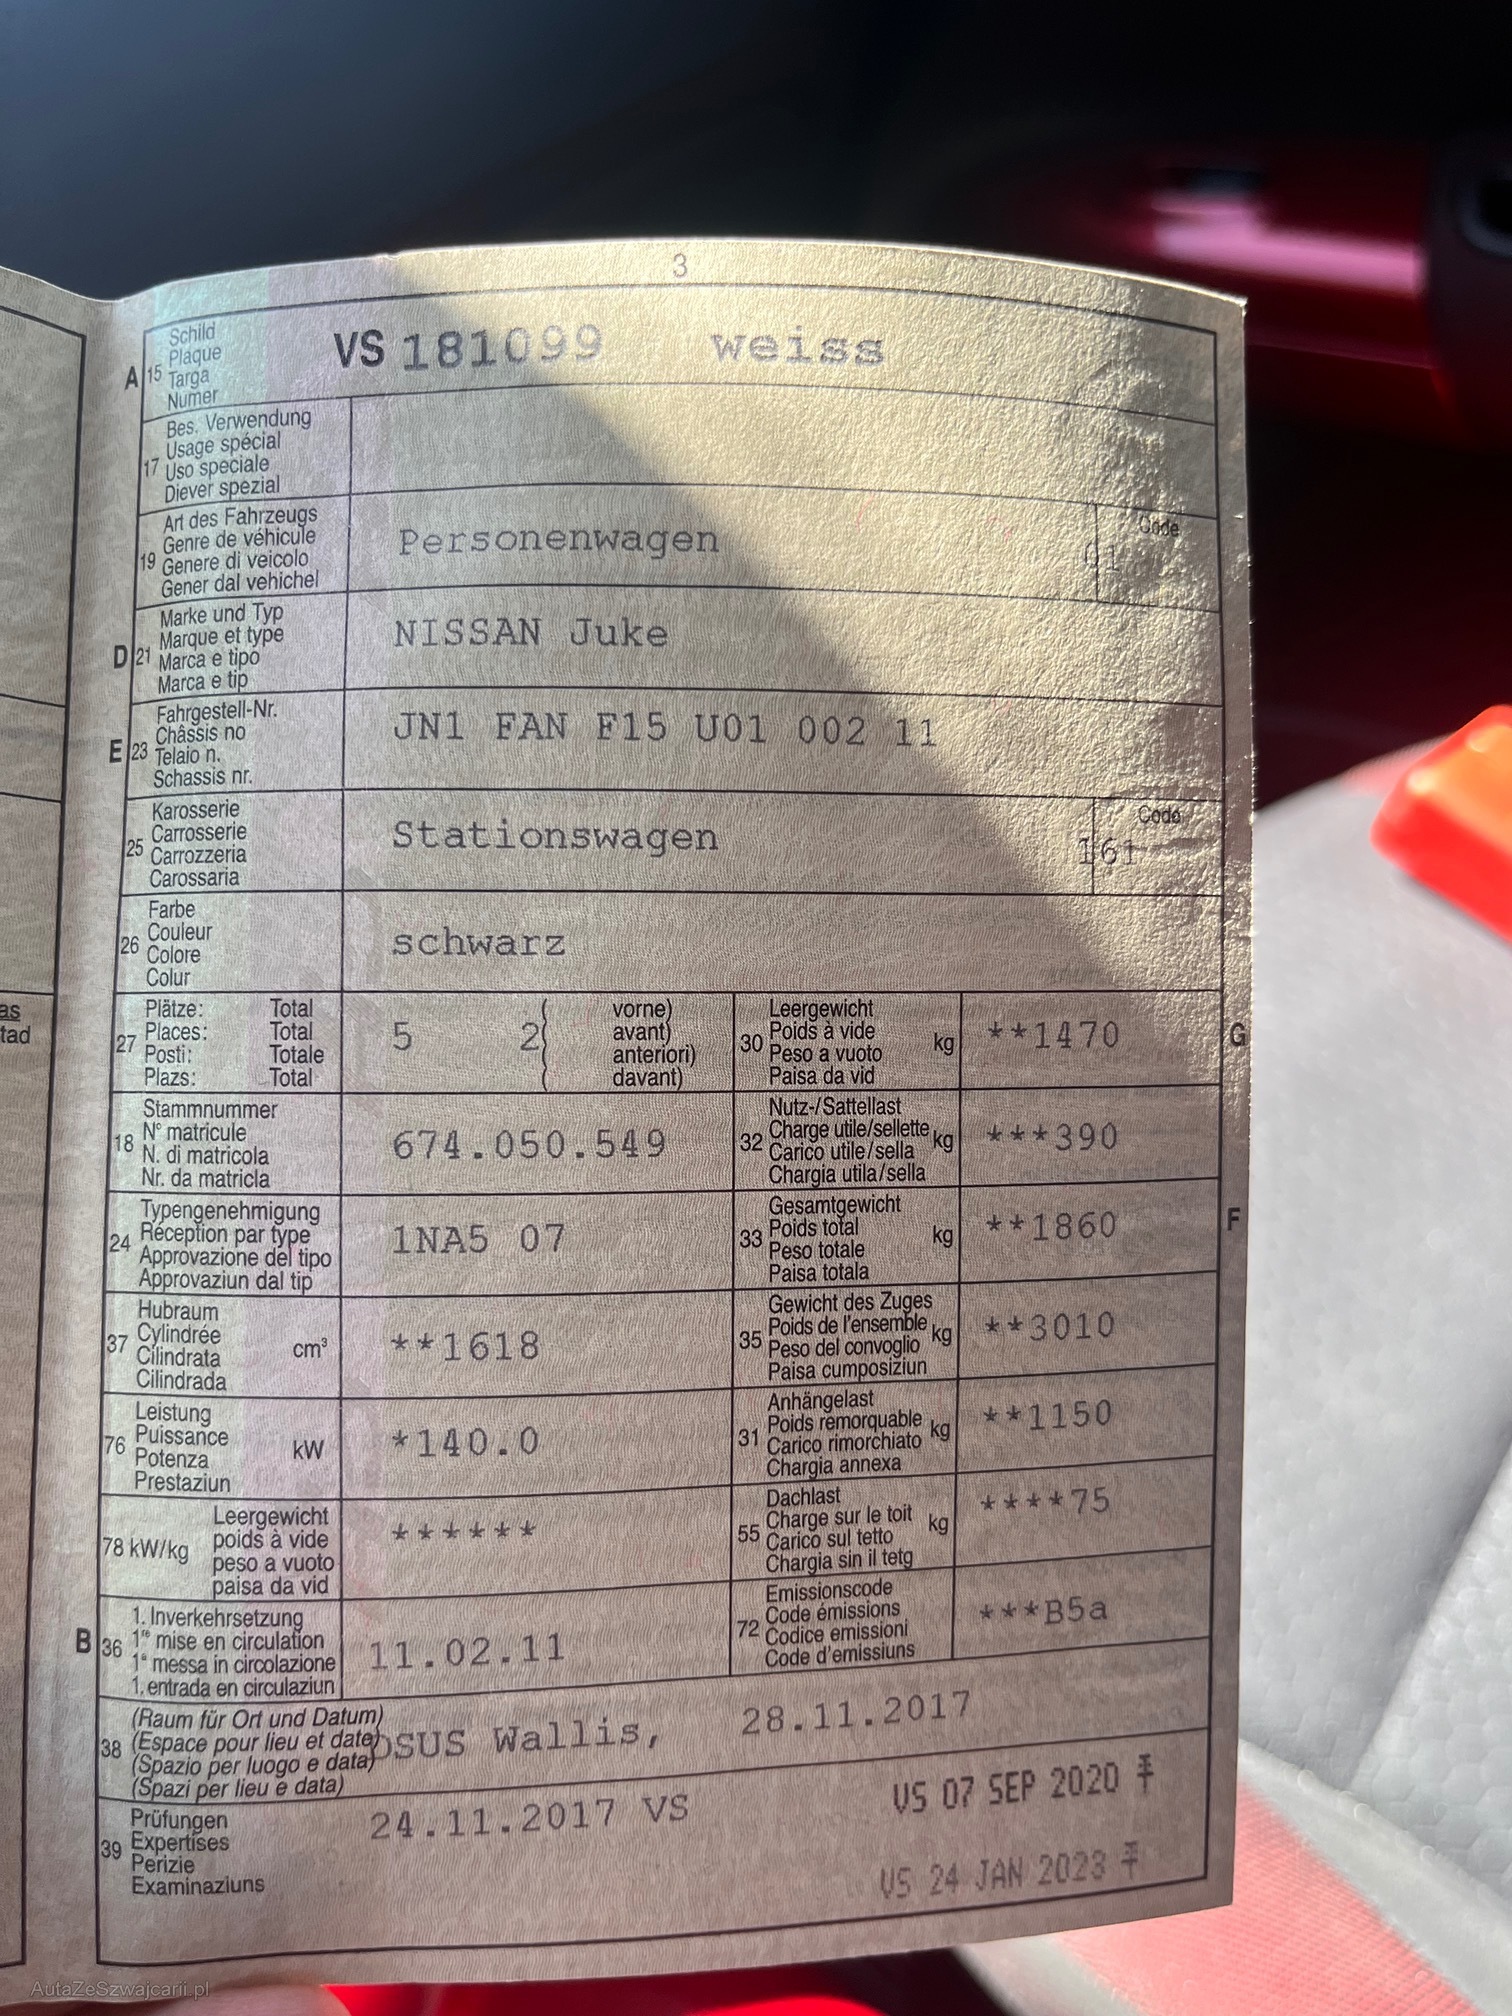 3
A 15 Schild Plaque Targa Numer VS 181099 weiss
17 Bes. Verwendung
Usage spécial
Uso speciale
Diever spezial
19 Art des Fahrzeugs
Genre de véhicule
Genere di veicolo
Gener dal vehichel
Personenwagen
Code
01
D 21 Marke und Typ
Marque et type
Marca e tipo
Marca e tip
NISSAN Juke
E 23 Fahrgestell-Nr.
Châssis no
Telaio n.
Schassis nr.
JN1 FAN F15 U01 002 11
25 Karosserie
Carrosserie
Carrozzeria
Carossaria
Stationswagen
Code
161
26 Farbe
Couleur
Colore
Colur
schwarz
27 Plätze: Total
Places: Total
Posti: Totale
Plazs: Total
5 2
vorne)
avant)
anteriori)
davant)
30 Leergewicht
Poids à vide
Peso a vuoto
Paisa da vid
kg
**1470
G
18 Stammnummer
N° matricule
N. di matricola
Nr. da matricla
674.050.549
32 Nutz-/Sattellast
Charge utile/sellette
Carico utile/sella
Chargia utila/sella
kg
***390
24 Typengenehmigung
Réception par type
Approvazione del tipo
Approvaziun dal tip
1NA5 07
33 Gesamtgewicht
Poids total
Peso totale
Paisa totala
kg
**1860
F
37 Hubraum
Cylindrée
Cilindrata
Cilindrada
cm³
**1618
35 Gewicht des Zuges
Poids de l'ensemble
Peso del convoglio
Paisa cumposiziun
kg
**3010
76 Leistung
Puissance
Potenza
Prestaziun
kW
*140.0
31 Anhängelast
Poids remorquable
Carico rimorchiato
Chargia annexa
kg
**1150
78 kW/kg
Leergewicht
poids à vide
peso a vuoto
paisa da vid
******
55 Dachlast
Charge sur le toit
Carico sul tetto
Chargia sin il tetg
kg
****75
B 36 1. Inverkehrsetzung
1re mise en circulation
1a messa in circolazione
1. entrada en circulaziun
11.02.11
72 Emissionscode
Code émissions
Codice emissioni
Code d'emissiuns
***B5a
38 (Raum für Ort und Datum)
(Espace pour lieu et date)
(Spazio per luogo e data)
(Spazi per lieu e data)
DSUS Wallis, 28.11.2017
39 Prüfungen
Expertises
Perizie
Examinaziuns
24.11.2017 VS
VS 07 SEP 2020
VS 24 JAN 2023
as
tad
AutaZeSzwajcarii.pl